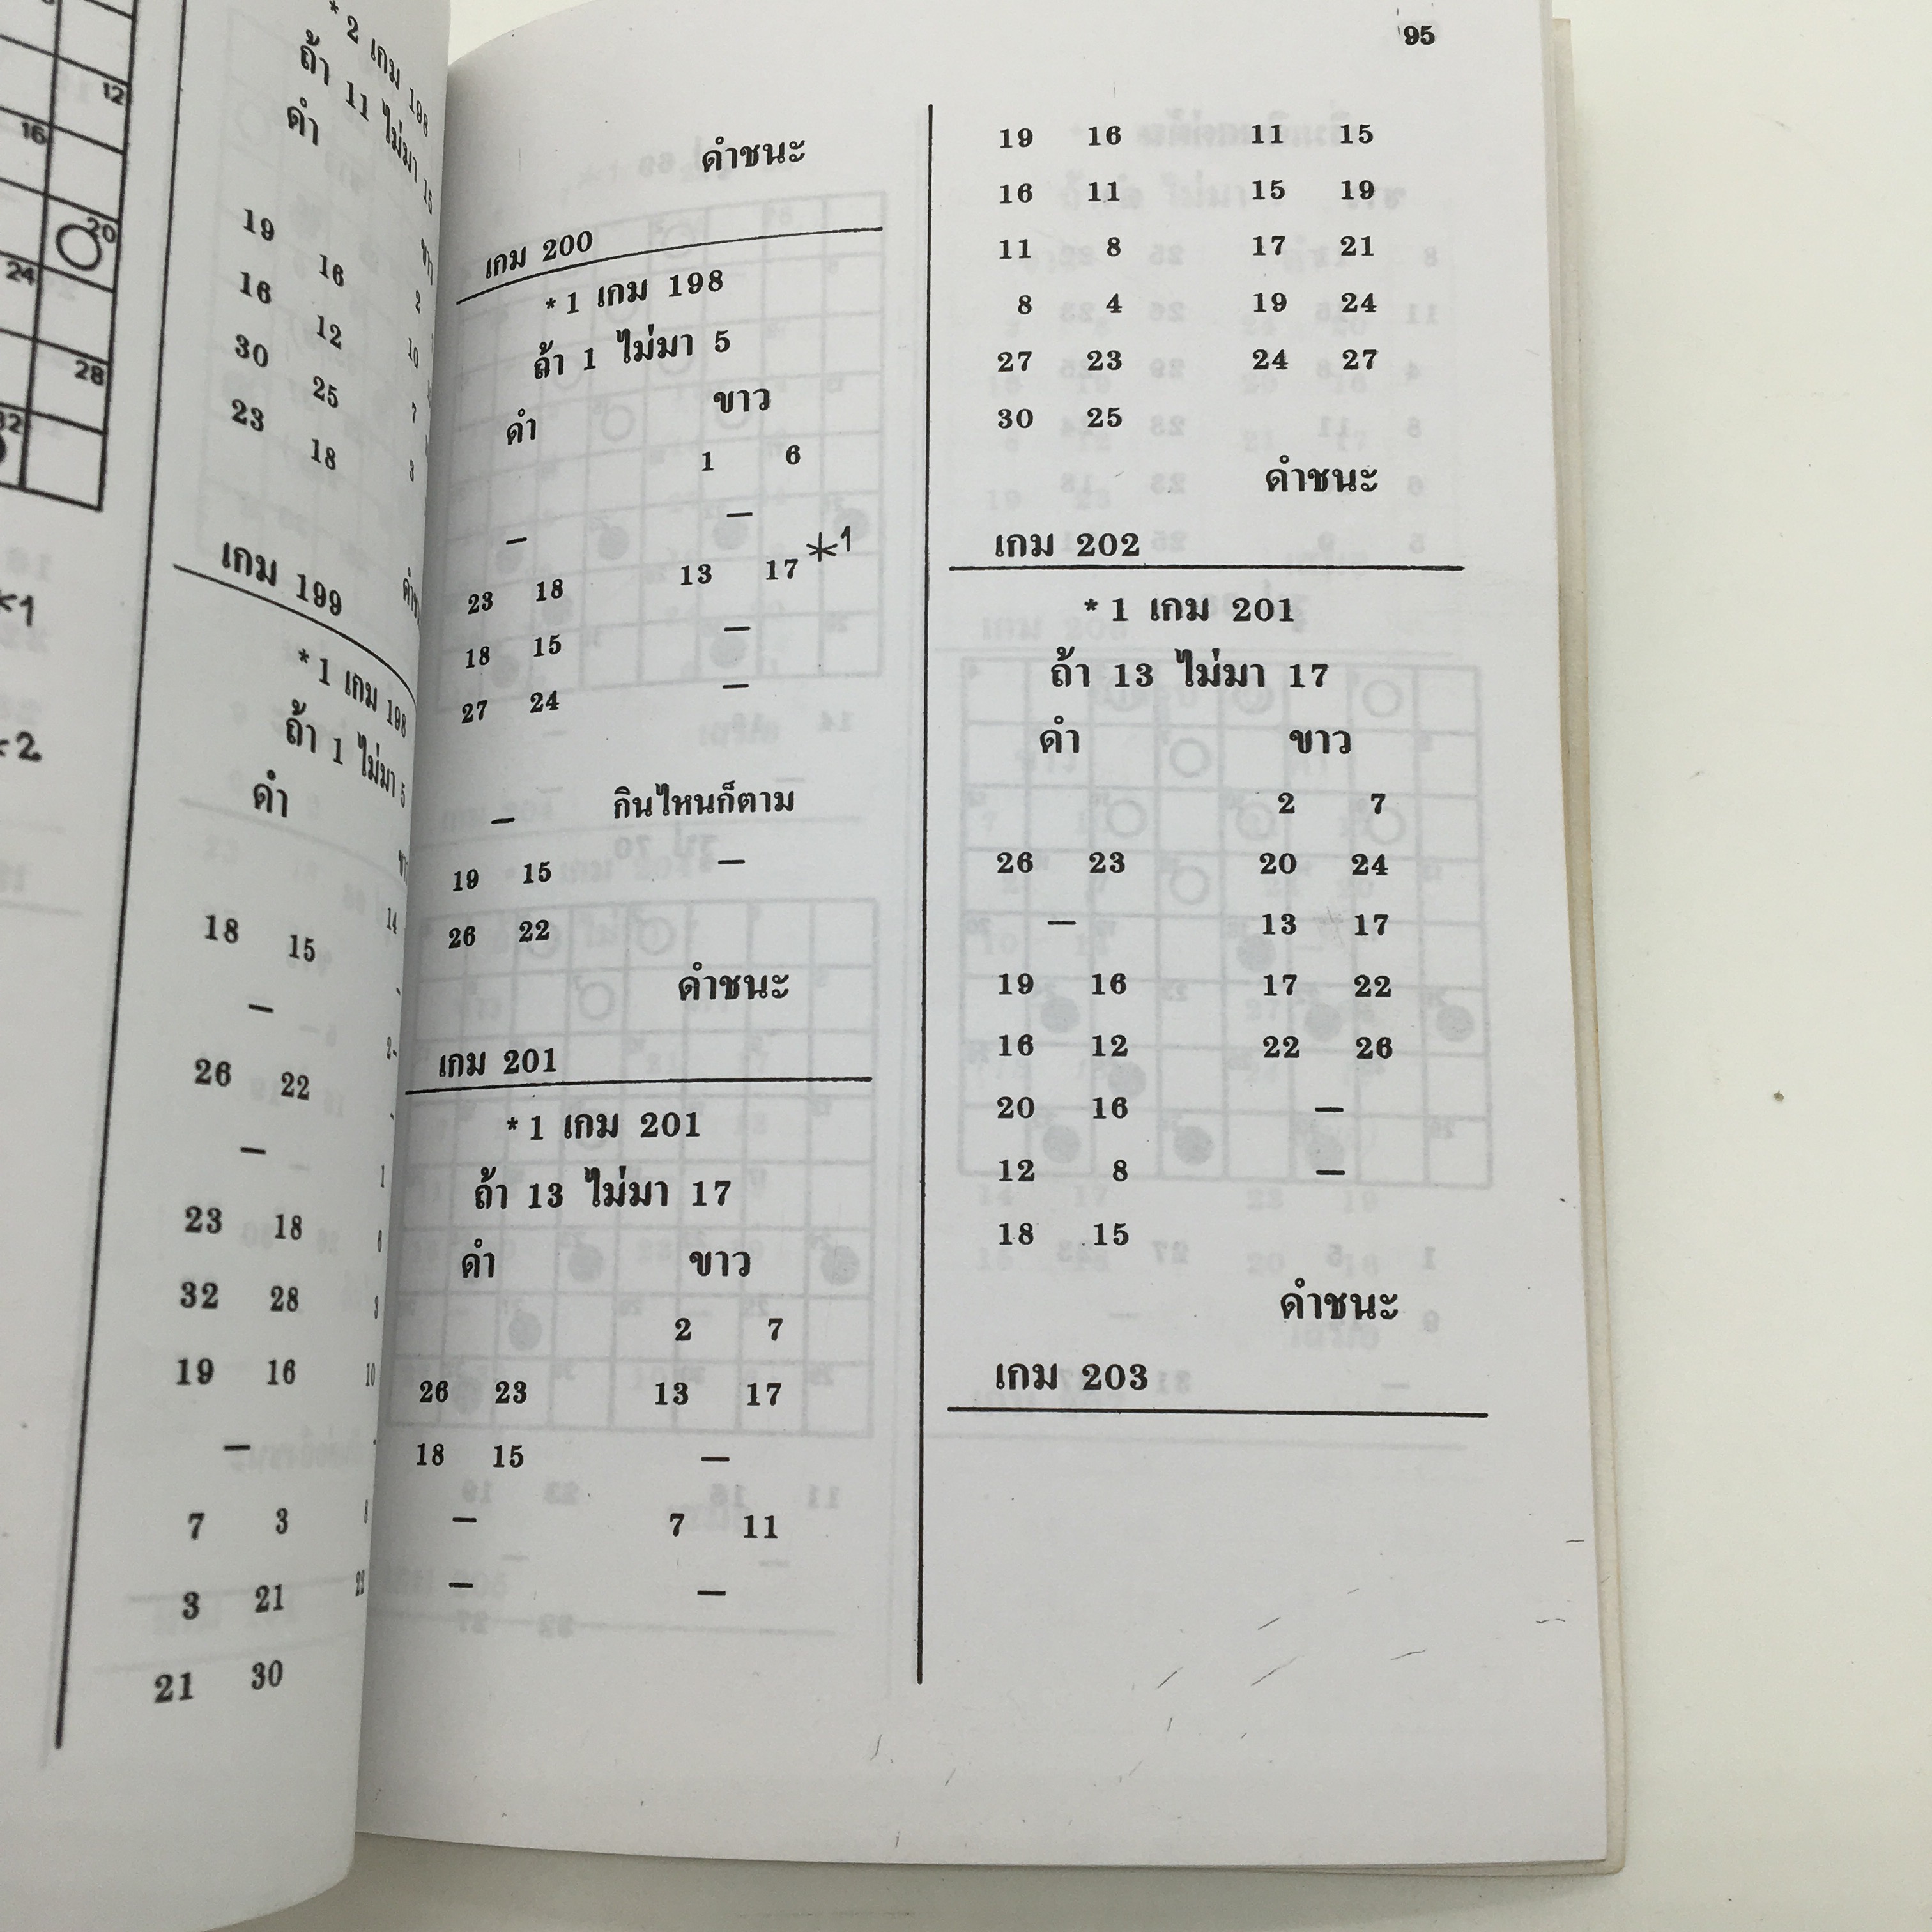 12
16
20
24
28
32
*1
*2
* 2 เกม 198
ถ้า 11 ไม่มา 15
ดำ
19 16 2
16 12 10
30 25 7
23 18 3
เกม 199
* 1 เกม 198
ถ้า 1 ไม่มา 5
ดำ
18 15 14
—
26 22
—
23 18 6
32 28
19 16 10
—
7 3
3 21 22
21 30
95
ดำชนะ
เกม 200
* 1 เกม 198
ถ้า 1 ไม่มา 5
ดำ ขาว
1 6
— —
23 18 13 17 *1
18 15 —
27 24 —
— กินไหนก็ตาม
19 15 —
26 22
ดำชนะ
เกม 201
* 1 เกม 201
ถ้า 13 ไม่มา 17
ดำ ขาว
2 7
26 23 13 17
18 15 —
— 7 11
— —
19 16 11 15
16 11 15 19
11 8 17 21
8 4 19 24
27 23 24 27
30 25
ดำชนะ
เกม 202
* 1 เกม 201
ถ้า 13 ไม่มา 17
ดำ ขาว
2 7
26 23 20 24
— 13 17
19 16 17 22
16 12 22 26
20 16 —
12 8 —
18 15
ดำชนะ
เกม 203